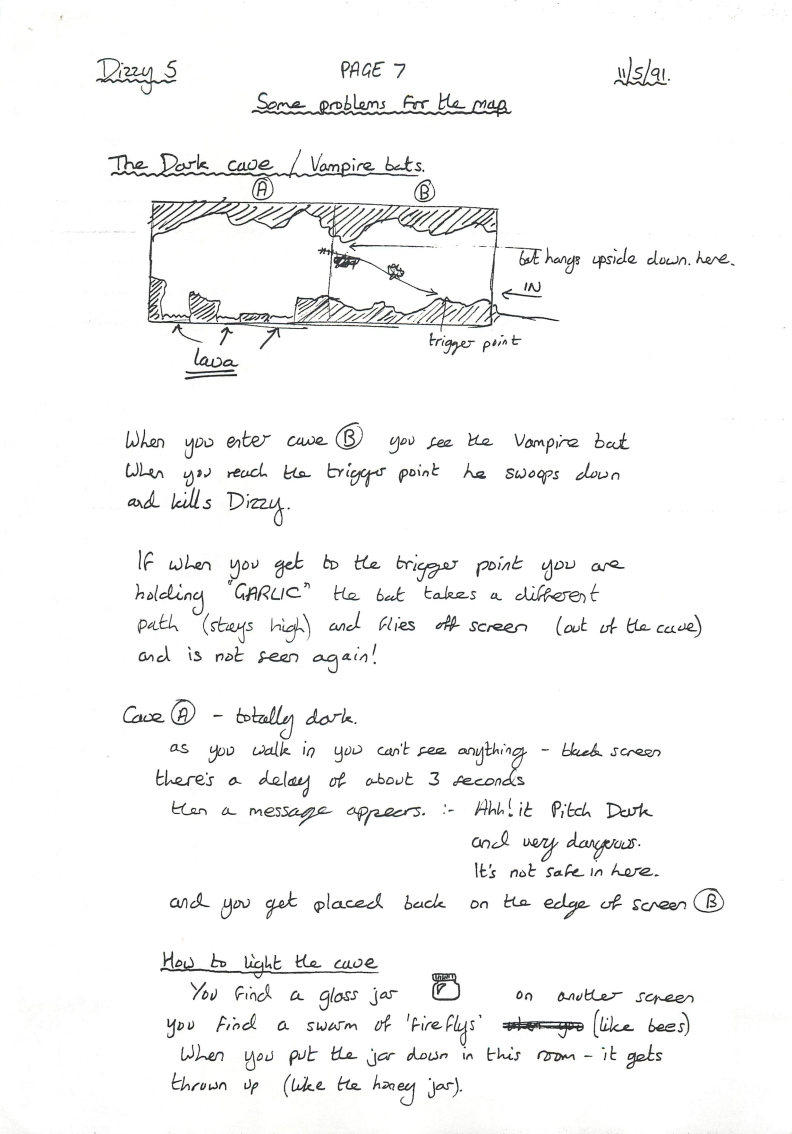 Dizzy 5 PAGE 7 11/5/91.
Some problems for the map
The Dark cave / Vampire bats.
A B
bat hangs upside down. here.
IN
trigger point
lava
When you enter cave B you see the Vampire bat
When you reach the trigger point he swoops down
and kills Dizzy.
If when you get to the trigger point you are
holding "GARLIC" the bat takes a different
path (stays high) and flies off screen (out of the cave)
and is not seen again!
Cave A - totally dark.
as you walk in you can't see anything - black screen
there's a delay of about 3 seconds
then a message appears. :- Ahh! it Pitch Dark
and very dangerous.
It's not safe in here.
and you get placed back on the edge of screen B
How to light the cave
You find a glass jar on another screen
you find a swarm of 'fireflys' (like bees)
When you put the jar down in this room - it gets
thrown up (like the honey jar).